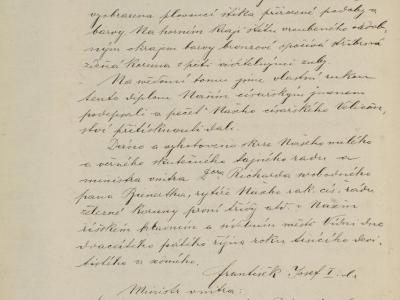 vyobrazena plovoucí štika přirozené podoby a
barvy. Na horním kraji štítu vroubeného ozdob-
ným okrajem barvy bronzové spočívá stříbrná
zděná koruna s pěti viditelnými zuby.
Na vědomí tomu jsme vlastní rukou
tento diplom Naším císařským jmenem
podepsali a pečeť Našeho císařského Veličen-
ství přitisknouti dali.
Dáno a vyhotoveno skrze Našeho milého
a věrného skutečného tajného radu a
ministra vnitra Richarda svobodného
pana Bienertha, rytíře Našeho rak. cís. řádu
železné koruny první třídy atd. v Našem
říšském hlavním a sídelním městě Vídni dne
dvacátého pátého října roku tisícího devi-
tistého a osmého.
František Josef I. 
Ministr vnitra: